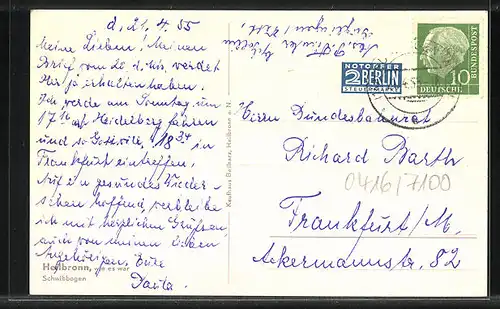 d. 21. 4. 55
Meine Lieben! Meinen
Brief vom 20. d. Mts. werdet
Ihr ja erhalten haben.
Ich werde am Sonntag um
17 ab Heidelberg fahren
und so Gott will, 18 24 in
Frankfurt eintreffen,
Auf ein gesundes Wieder-
sehen hoffend verbleibe
ich mit herzlichen Grüßen,
auch von meinen lieben
Angehörigen, Eure
Paula.
Heilbronn, wie es war
Schwibbogen
NOTOPFER
2 BERLIN
STEUERMARKE
DEUTSCHE
BUNDESPOST
10
Herrn Bundesbahnrat
Richard Barth
0416/7100
Frankfurt/M.
Ackermannstr. 82